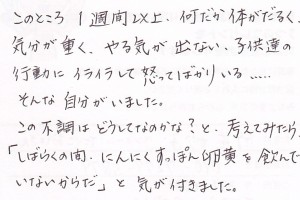 このところ 1週間以上、何だか体がだるく、
気分が重く、やる気が出ない、子供達の
行動にイライラして怒ってばかりいる……
そんな自分がいました。
この不調はどうしてなのかな?と、考えてみたら、
「しばらくの間、にんにくすっぽん卵黄を飲んで
いないからだ」と気が付きました。